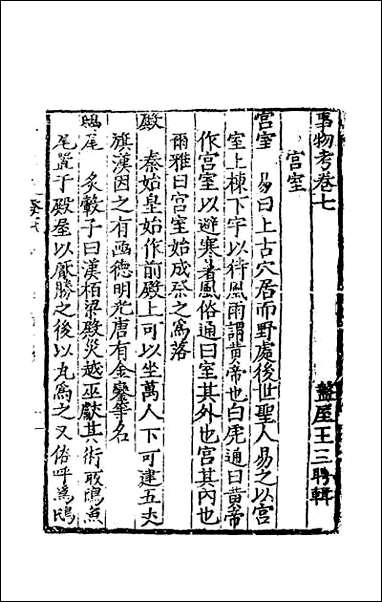 事物考卷七
盩厔王三聘輯
宮室
宮室 易曰上古穴居而野處後世聖人易之以宮
室上棟下宇以待風雨謂黄帝也白虎通曰黄帝
作宮室以避寒暑風俗通曰室其外也宮其內也
爾雅曰宮室始成祭之為落
殿 秦始皇始作前殿上可以坐萬人下可建五丈
旗漢因之有函德明光唐有金鑾等名
鴟尾 炙轂子曰漢栢梁殿災越巫獻其術取鴟魚
尾置于殿屋以厭勝之後以瓦為之又俗呼為鴟